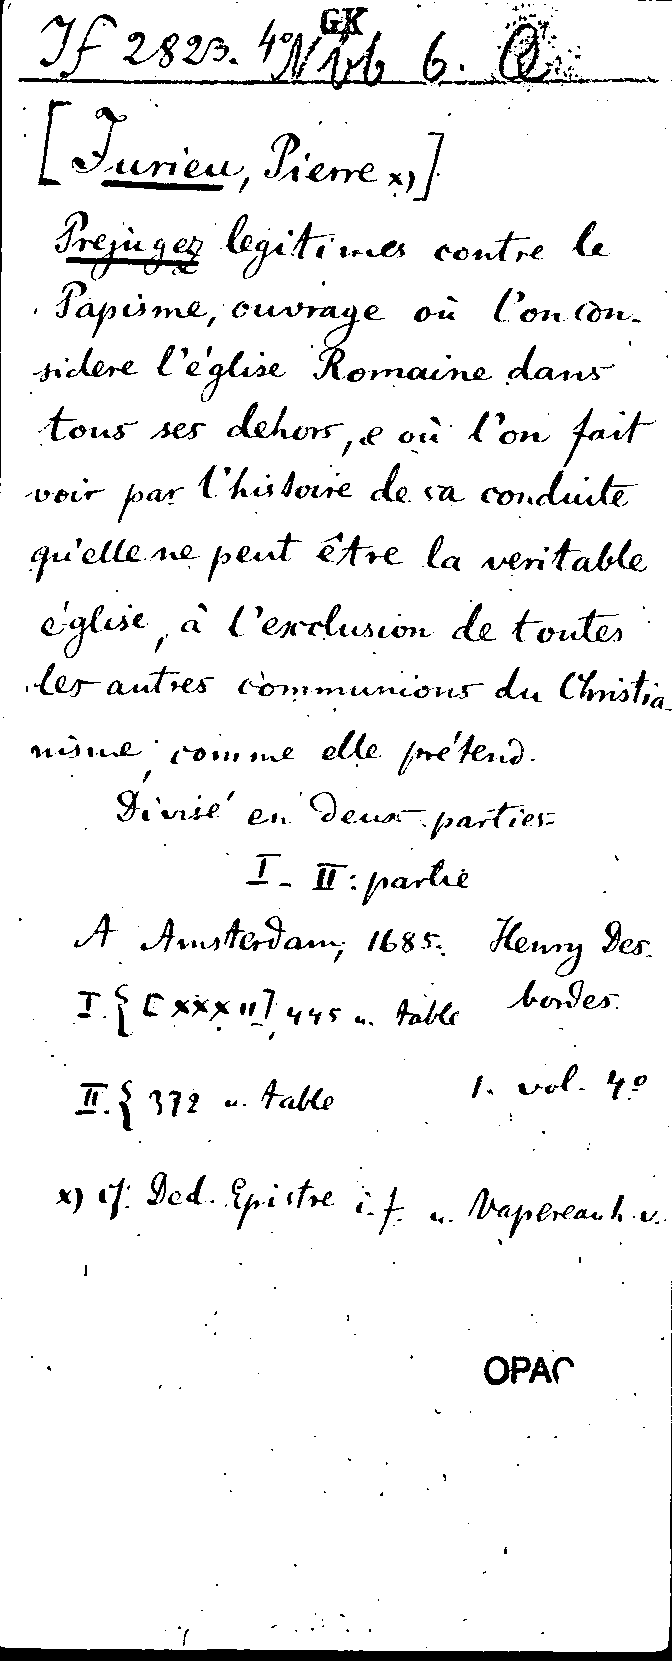 GK
If 2823. 4° Nbb 6. Q
[Jurieu, Pierre x)]
Prejugez legitimes contre le
Papisme, ouvrage où l'on con-
sidere l'église Romaine dans
tous ses dehors, e où l'on fait
voir par l'histoire de sa conduite
qu'elle ne peut être la veritable
église, à l'exclusion de toutes
les autres communions du Christia-
nisme, comme elle prétend.
Divisé en deux parties
I - II: partie
A Amsterdam, 1685. Henry Des-
bordes.
I. { [XXXII], 445 u. table
II. { 372 u. table
1. vol. 4°
x) cf. Ded. Epistre i. f. u. Vapereau h. v.
OPAC